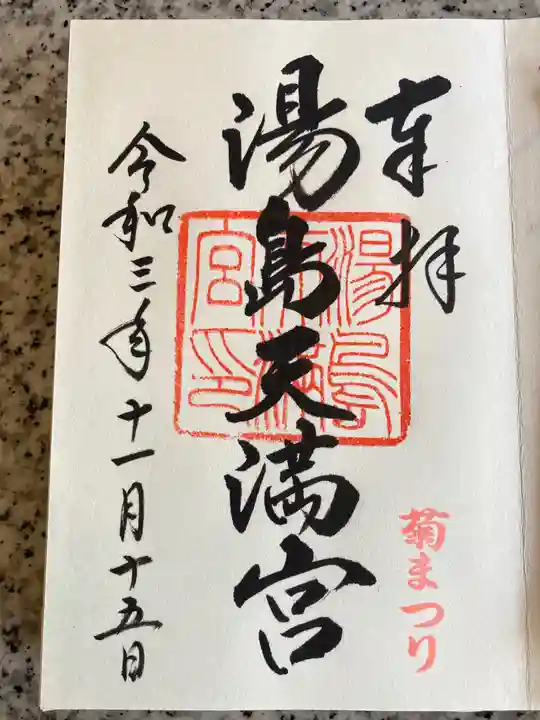 奉拝
菊まつり
湯島天満宮
湯島天満宮印
令和三年十一月十五日